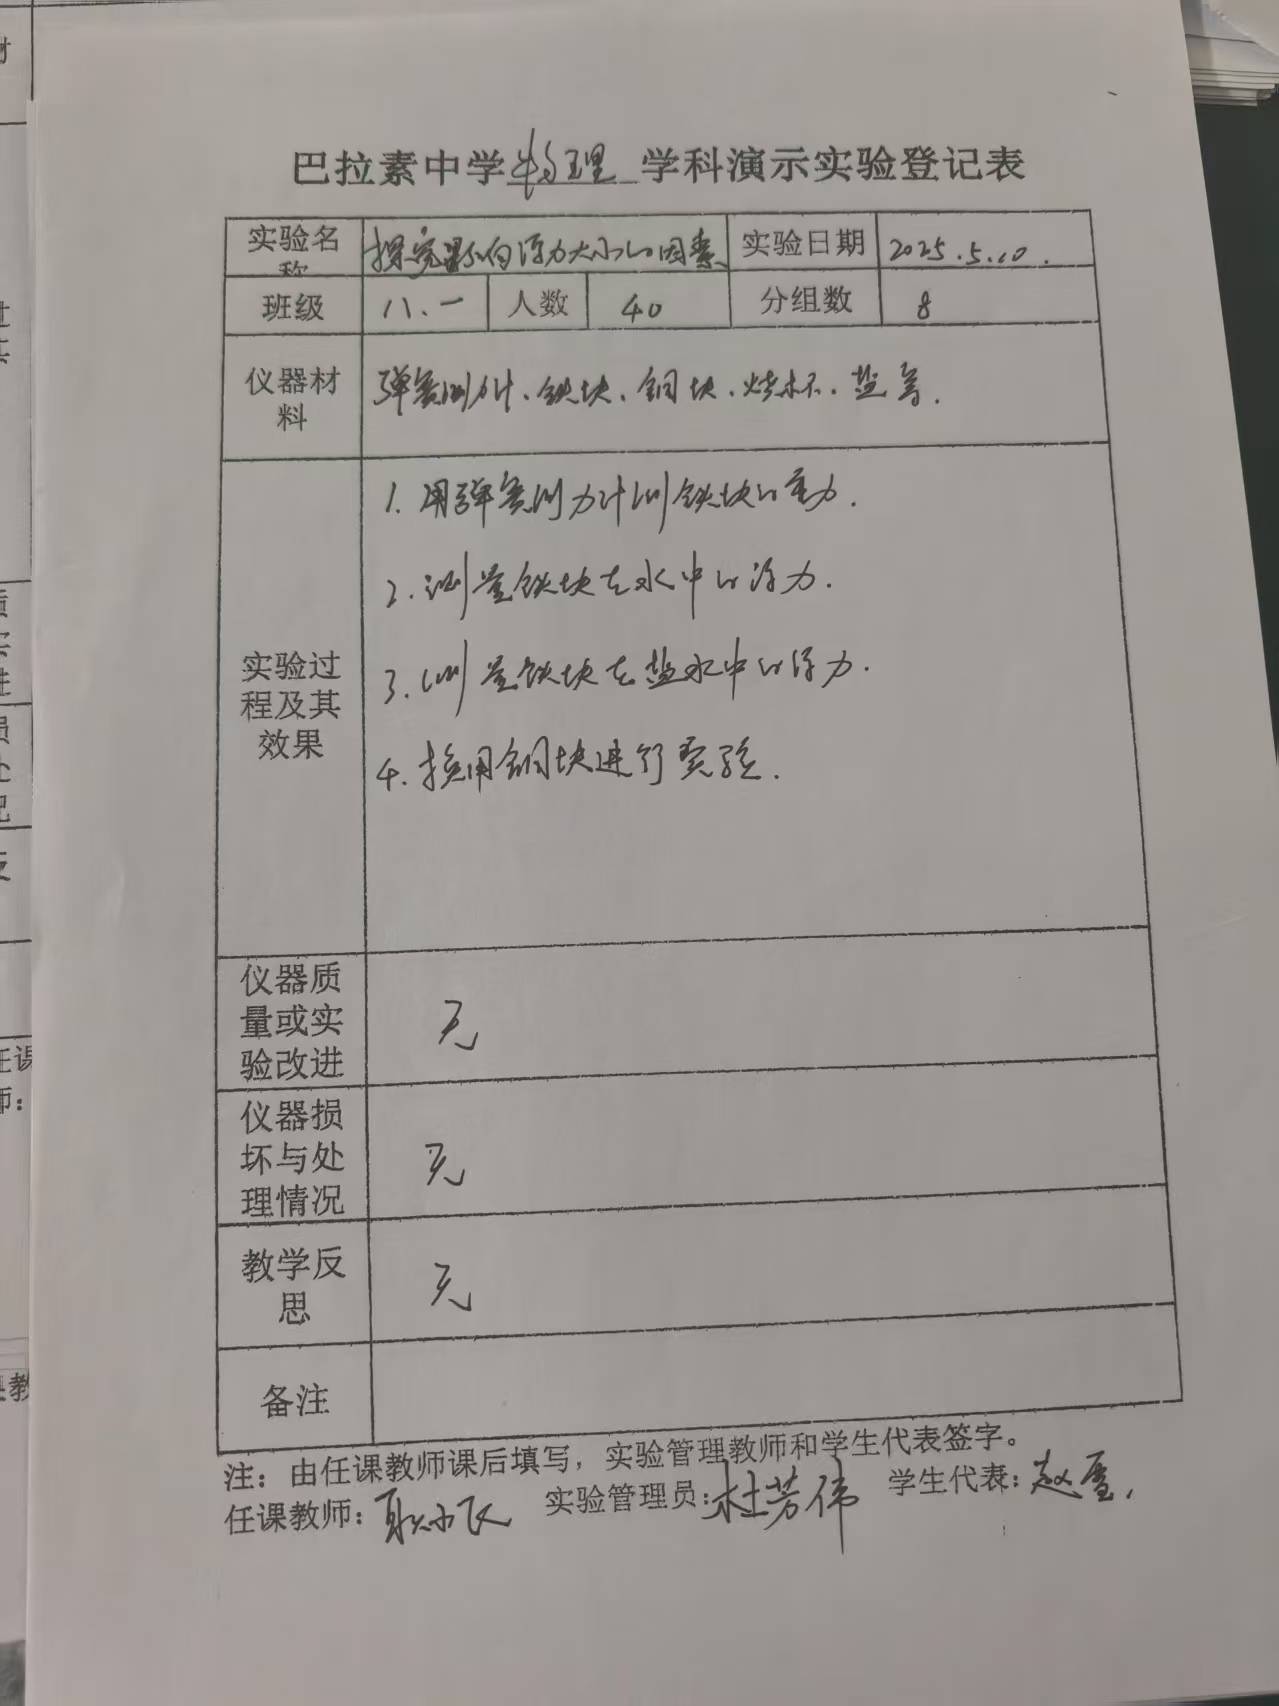 巴拉素中学物理学科演示实验登记表
实验名称 探究影响浮力大小的因素 实验日期 2025.5.10.
班级 八.一 人数 40 分组数 8
仪器材料 弹簧测力计、铁块、铜块、烧杯、盐等.
实验过程及其效果
1.用弹簧测力计测铁块的重力.
2.测量铁块在水中的浮力.
3.测量铁块在盐水中的浮力.
4.换用铜块进行实验.
仪器质量或实验改进 无
仪器损坏与处理情况 无
教学反思 无
备注
注：由任课教师课后填写，实验管理教师和学生代表签字。
任课教师： 实验管理员：杜芳伟 学生代表：赵雪